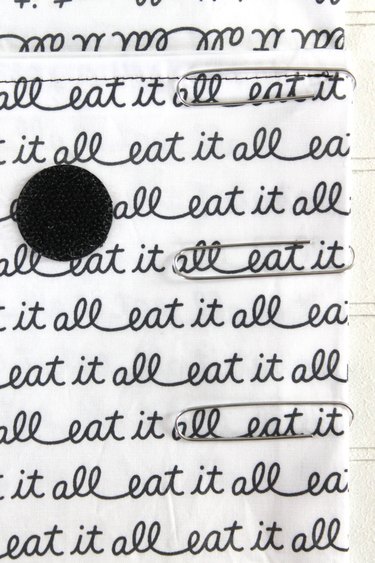 all eat it all eat it
it all eat it all ea
all eat it all
all eat it all eat it
it all eat it all ea
eat it all eat it all
all eat it all eat it
it all eat it all ea
eat it all eat it all